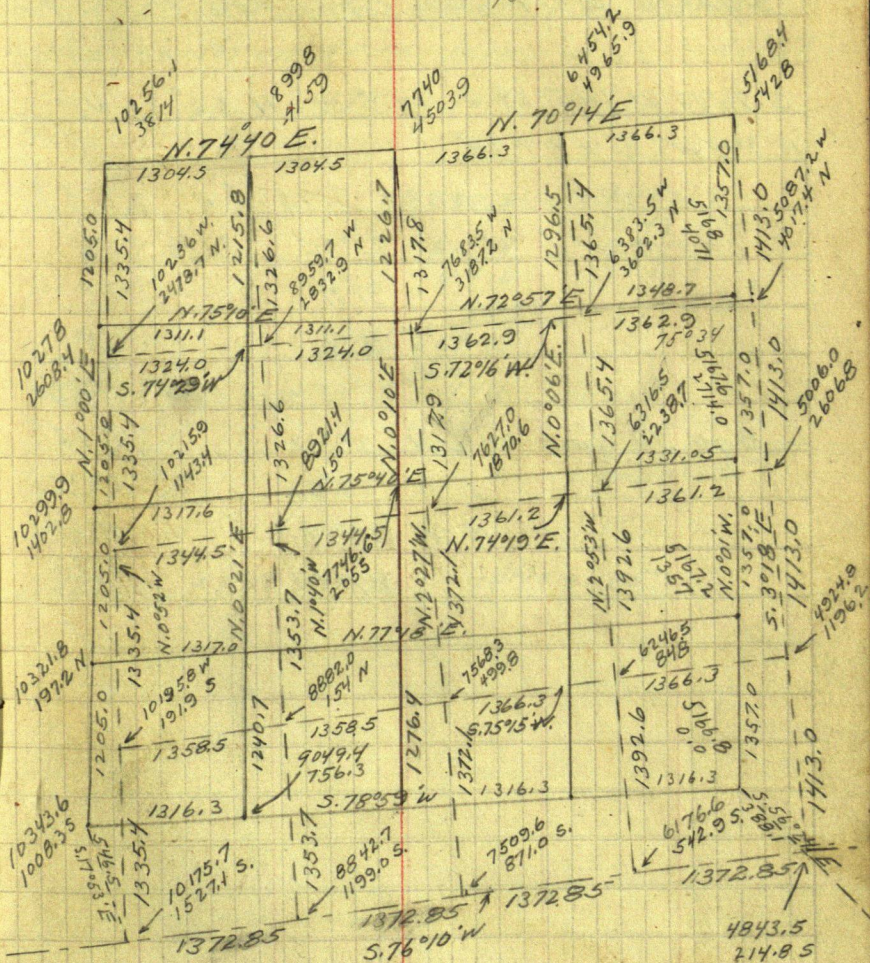 10256.1
3814
8998
4159
7740
4503.9
6454.2
4965.9
5168.4
5428
N. 74°40 E.
N. 70°14' E
1304.5
1304.5
1366.3
1366.3
1205.0
1335.4
1215.8
1326.6
1226.7
1317.8
1296.5
1365.4
1357.0
1413.0
10236 W.
2478.7 N.
8959.7 W
2832.9 N
7683.5 W
3187.2 N
6383.5 W
3602.3 N
5087.2 W
4017.4 N
N. 75°0' E
N. 72°57' E
1348.7
1311.1
1311.1
1362.9
1362.9
75°34
1324.0
1324.0
S. 74°29' W
S. 72°16' W.
10278
2608.4
N. 1°00' E
1205.0
1335.4
1326.6
N. 0°10' E
1317.9
N. 0°06' E.
1365.4
1357.0
1413.0
10215.9
1143.4
8921.4
1507
7627.0
1870.6
6316.5
2238.7
5006.0
2606.8
N. 75°40' E
1331.05
1317.6
1361.2
1344.5
1344.5
1361.2
N. 74°19' E.
10299.9
1402.8
1205.0
1335.4
N. 0°52' W
N. 0°21' E
1353.7
N. 1°40' W
7746.6
2055
N. 2°27' W.
1372.1
N. 2°53' W
1392.6
N. 0°01' W.
1357.0
S. 3°18' E
1413.0
N. 77°18' E.
1317.0
10321.8
197.2 N
10195.8 W
191.9 S
8882.0
154 N
7568.3
499.8
6246.5
848
4924.9
1196.2
1366.3
1366.3
1358.5
1358.5
S. 75°15' W.
1205.0
1240.7
9049.4
756.3
1276.4
1372.1
1392.6
1357.0
1413.0
1316.3
S. 78°59' W
1316.3
1316.3
10343.6
1008.3 S
1335.4
10175.7
1527.1 S.
1353.7
8842.7
1199.0 S.
7509.6
871.0 S.
6176.6
542.9 S.
1372.85
1372.85
1372.85
1372.85
S. 76°10' W
4843.5
214.8 S